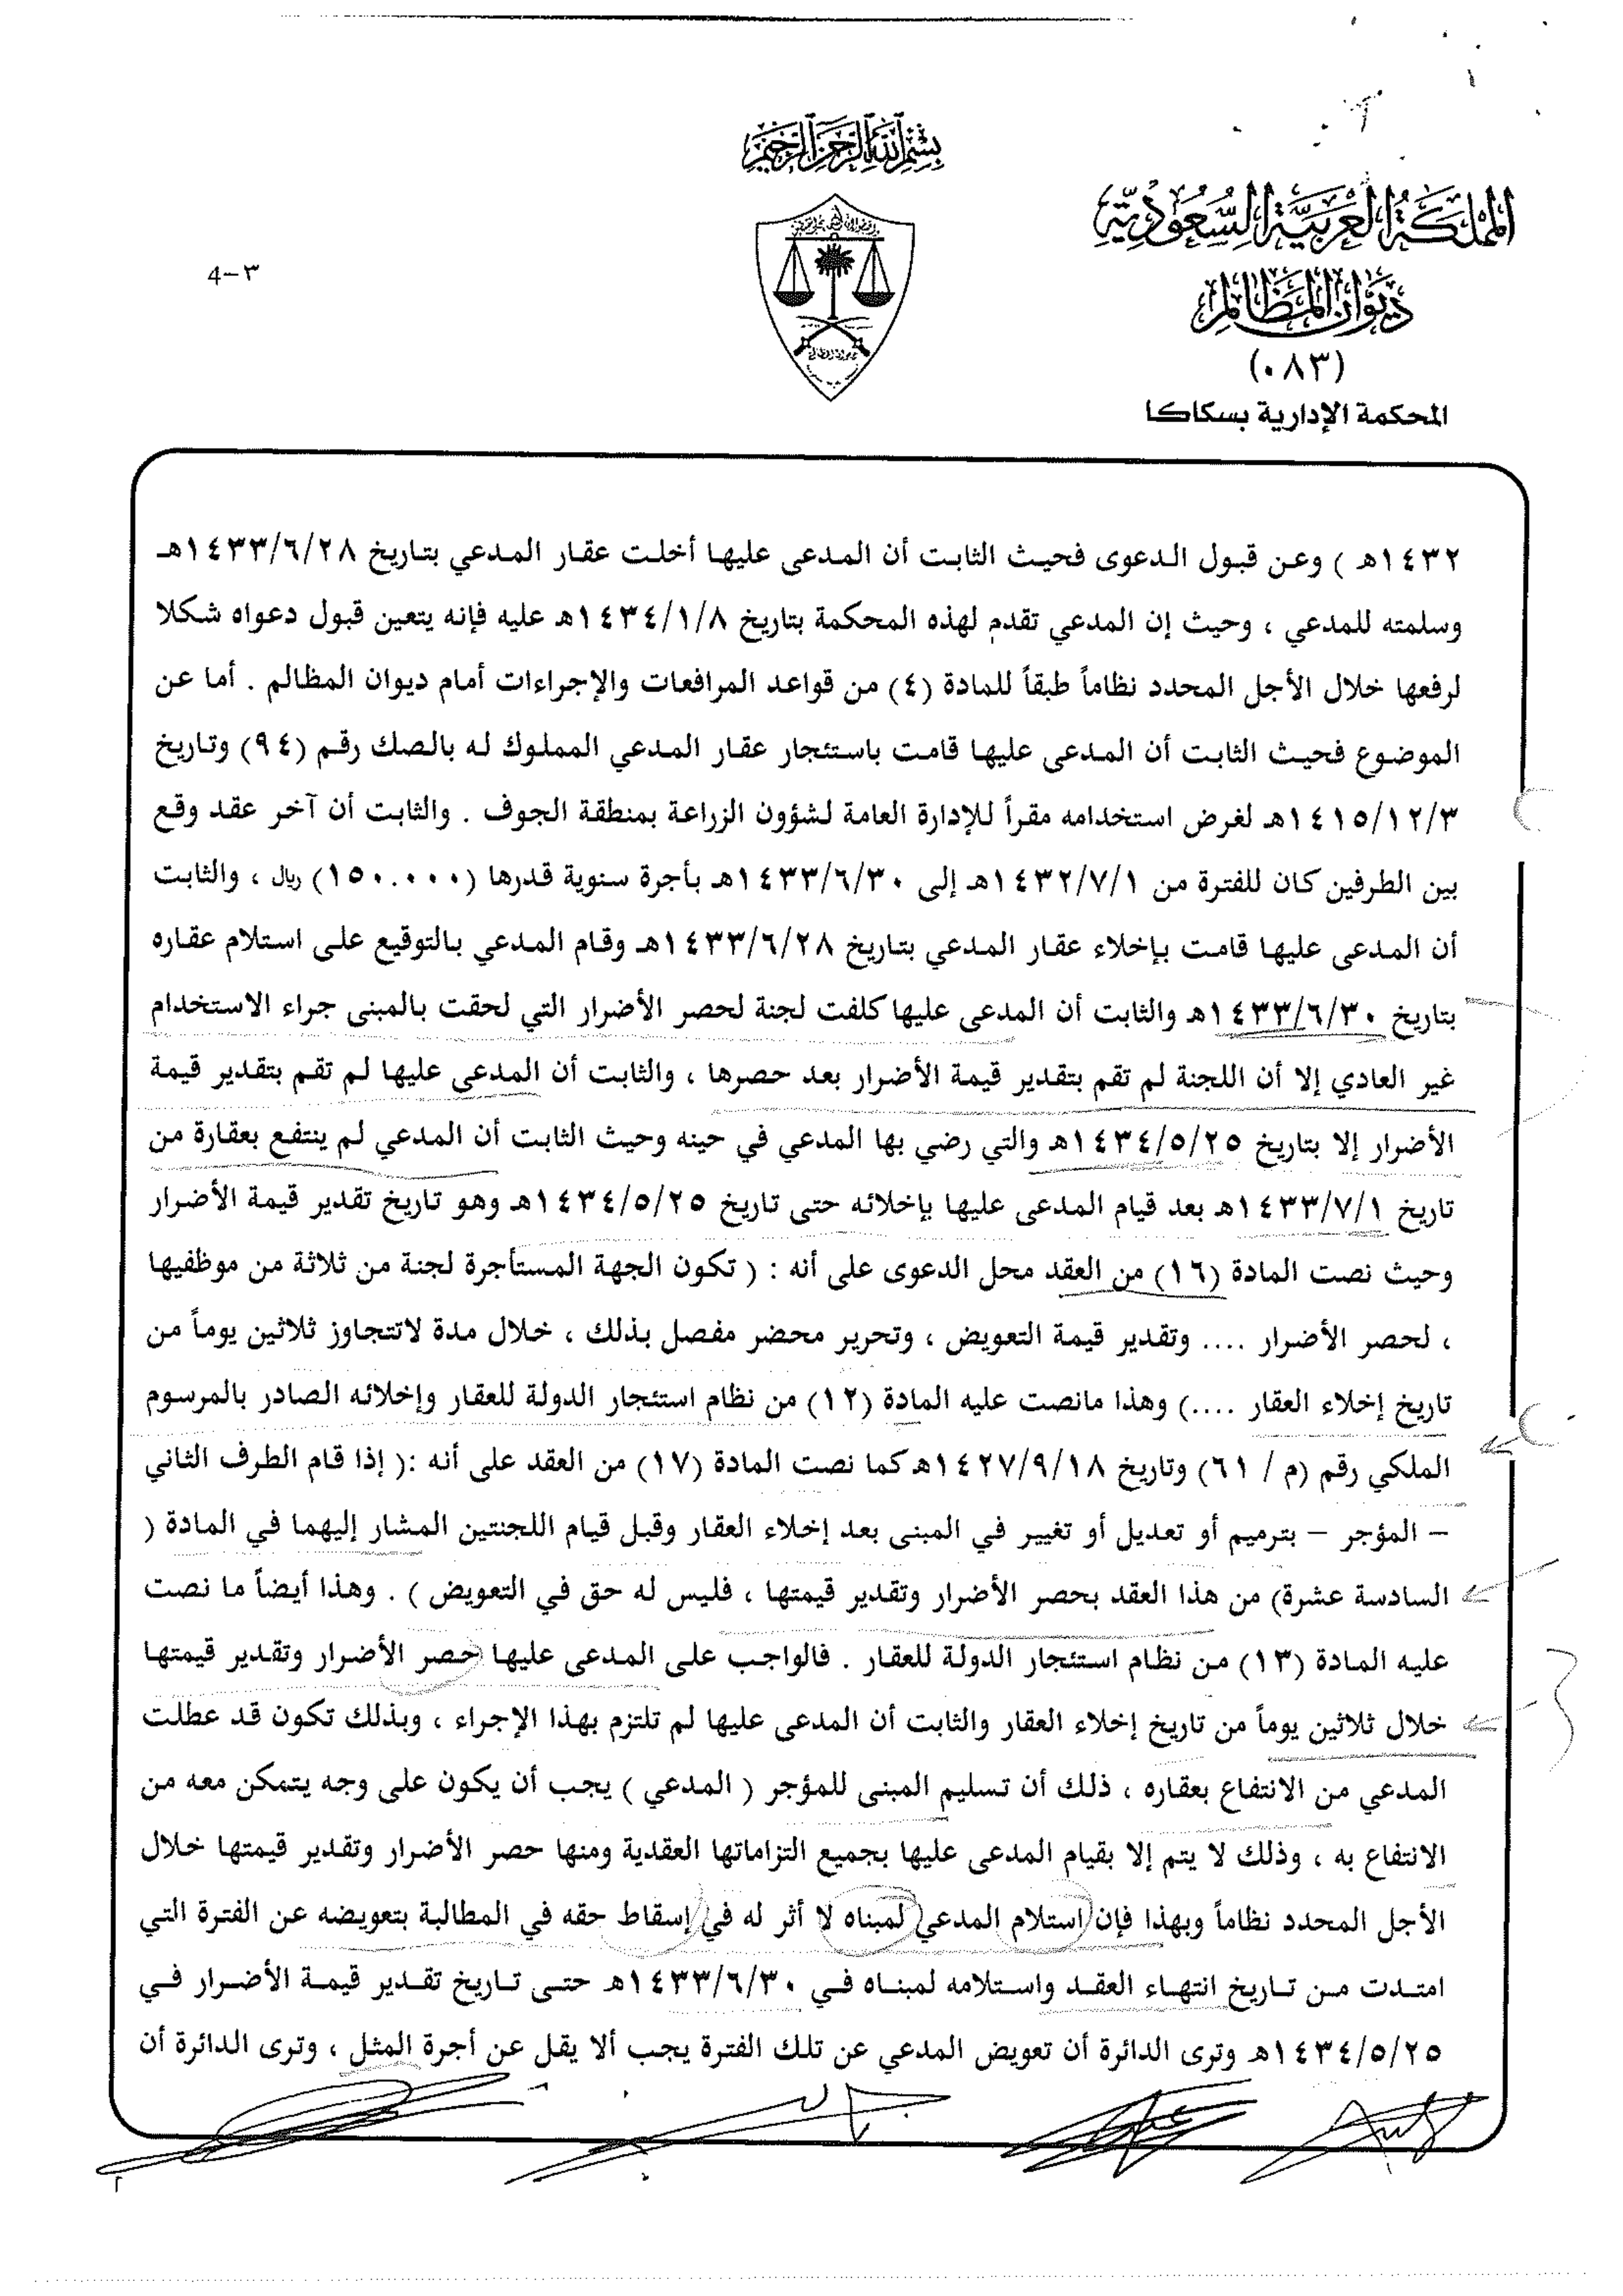 بسم الله الرحمن الرحيم
المملكة العربية السعودية
ديوان المظالم
(٠٨٣)
المحكمة الإدارية بسكاكا
4-٣
١٤٣٢هـ ) وعن قبول الدعوى فحيث الثابت أن المدعى عليها أخلت عقار المدعي بتاريخ ١٤٣٣/٦/٢٨هـ
وسلمته للمدعي ، وحيث إن المدعي تقدم لهذه المحكمة بتاريخ ١٤٣٤/١/٨هـ عليه فإنه يتعين قبول دعواه شكلا
لرفعها خلال الأجل المحدد نظاماً طبقاً للمادة (٤) من قواعد المرافعات والإجراءات أمام ديوان المظالم . أما عن
الموضوع فحيث الثابت أن المدعى عليها قامت باستئجار عقار المدعي المملوك له بالصك رقم (٩٤) وتاريخ
١٤١٥/١٢/٣هـ لغرض استخدامه مقراً للإدارة العامة لشؤون الزراعة بمنطقة الجوف . والثابت أن آخر عقد وقع
بين الطرفين كان للفترة من ١٤٣٢/٧/١هـ إلى ١٤٣٣/٦/٣٠هـ بأجرة سنوية قدرها (١٥٠.٠٠٠) ريال ، والثابت
أن المدعى عليها قامت بإخلاء عقار المدعي بتاريخ ١٤٣٣/٦/٢٨هـ وقام المدعي بالتوقيع على استلام عقاره
بتاريخ ١٤٣٣/٦/٣٠هـ والثابت أن المدعى عليها كلفت لجنة لحصر الأضرار التي لحقت بالمبنى جراء الاستخدام
غير العادي إلا أن اللجنة لم تقم بتقدير قيمة الأضرار بعد حصرها ، والثابت أن المدعى عليها لم تقم بتقدير قيمة
الأضرار إلا بتاريخ ١٤٣٤/٥/٢٥هـ والتي رضي بها المدعي في حينه وحيث الثابت أن المدعي لم ينتفع بعقارة من
تاريخ ١٤٣٣/٧/١هـ بعد قيام المدعى عليها بإخلائه حتى تاريخ ١٤٣٤/٥/٢٥هـ وهو تاريخ تقدير قيمة الأضرار
وحيث نصت المادة (١٦) من العقد محل الدعوى على أنه : ( تكون الجهة المستأجرة لجنة من ثلاثة من موظفيها
، لحصر الأضرار .... وتقدير قيمة التعويض ، وتحرير محضر مفصل بذلك ، خلال مدة لاتتجاوز ثلاثين يوماً من
تاريخ إخلاء العقار ....) وهذا مانصت عليه المادة (١٢) من نظام استئجار الدولة للعقار وإخلائه الصادر بالمرسوم
الملكي رقم (م / ٦١) وتاريخ ١٤٢٧/٩/١٨هـ كما نصت المادة (١٧) من العقد على أنه :( إذا قام الطرف الثاني
– المؤجر – بترميم أو تعديل أو تغيير في المبنى بعد إخلاء العقار وقبل قيام اللجنتين المشار إليهما في المادة (
السادسة عشرة) من هذا العقد بحصر الأضرار وتقدير قيمتها ، فليس له حق في التعويض ) . وهذا أيضاً ما نصت
عليه المادة (١٣) من نظام استئجار الدولة للعقار . فالواجب على المدعى عليها حصر الأضرار وتقدير قيمتها
خلال ثلاثين يوماً من تاريخ إخلاء العقار والثابت أن المدعى عليها لم تلتزم بهذا الإجراء ، وبذلك تكون قد عطلت
المدعي من الانتفاع بعقاره ، ذلك أن تسليم المبنى للمؤجر ( المدعي ) يجب أن يكون على وجه يتمكن معه من
الانتفاع به ، وذلك لا يتم إلا بقيام المدعى عليها بجميع التزاماتها العقدية ومنها حصر الأضرار وتقدير قيمتها خلال
الأجل المحدد نظاماً وبهذا فإن استلام المدعي لمبناه لا أثر له في إسقاط حقه في المطالبة بتعويضه عن الفترة التي
امتدت من تاريخ انتهاء العقد واستلامه لمبناه في ١٤٣٣/٦/٣٠هـ حتى تاريخ تقدير قيمة الأضرار في
١٤٣٤/٥/٢٥هـ وترى الدائرة أن تعويض المدعي عن تلك الفترة يجب ألا يقل عن أجرة المثل ، وترى الدائرة أن